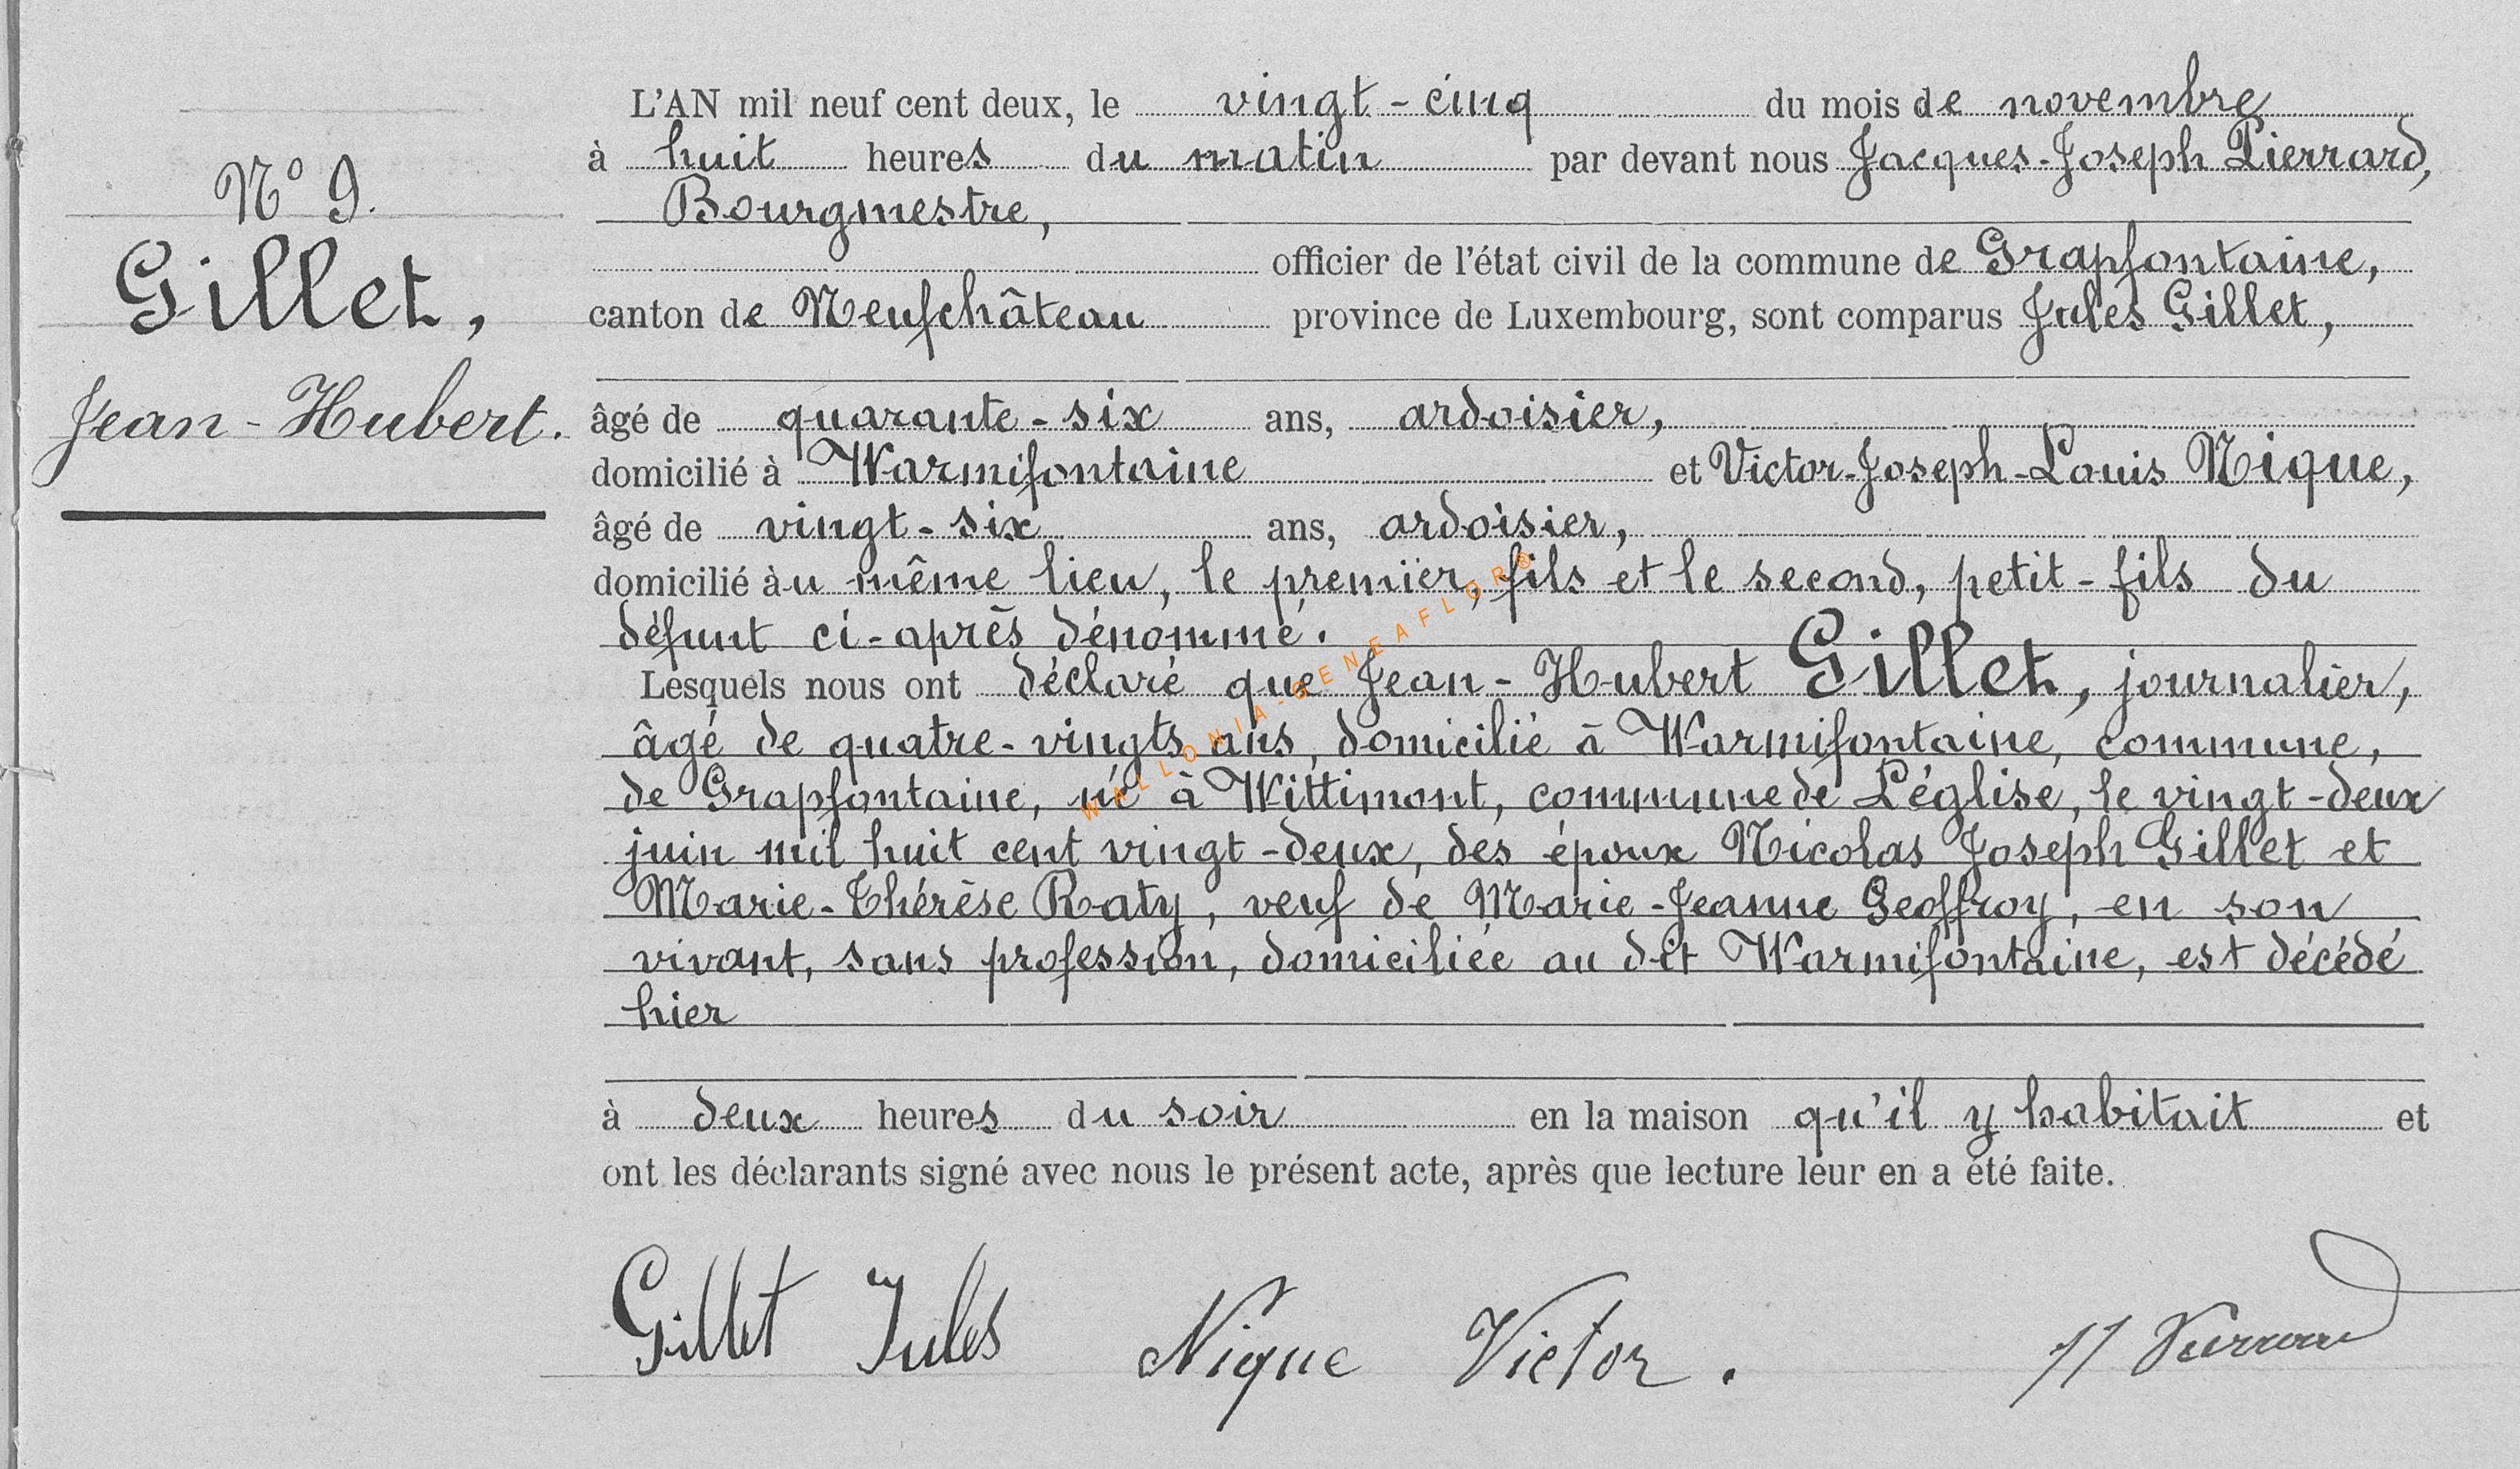 N° 9.
Gillet,
Jean-Hubert.
L'AN mil neuf cent deux, le vingt-cinq du mois de novembre
à huit heures du matin par devant nous Jacques-Joseph Pierrard,
Bourgmestre,
officier de l'état civil de la commune de Grapfontaine,
canton de Neufchâteau province de Luxembourg, sont comparus Jules Gillet,
âgé de quarante-six ans, ardoisier,
domicilié à Warmifontaine et Victor-Joseph-Louis Nique,
âgé de vingt-six ans, ardoisier,
domicilié àu même lieu, le premier, fils et le second, petit-fils du
défunt ci-après dénommé.
Lesquels nous ont déclaré que Jean-Hubert Gillet, journalier,
âgé de quatre-vingts ans, domicilié à Warmifontaine, commune,
de Grapfontaine, né à Wittimont, commune de Léglise, le vingt-deux
juin mil huit cent vingt-deux, des époux Nicolas Joseph Gillet et
Marie-Thérèse Raty, veuf de Marie-Jeanne Geoffroy, en son
vivant, sans profession, domiciliée au dit Warmifontaine, est décédé
hier
à deux heures du soir en la maison qu'il y habitait et
ont les déclarants signé avec nous le présent acte, après que lecture leur en a été faite.
Gillet Jules Nique Victor. JJ Pierrard
WALLONIA-GENEAFLOR®